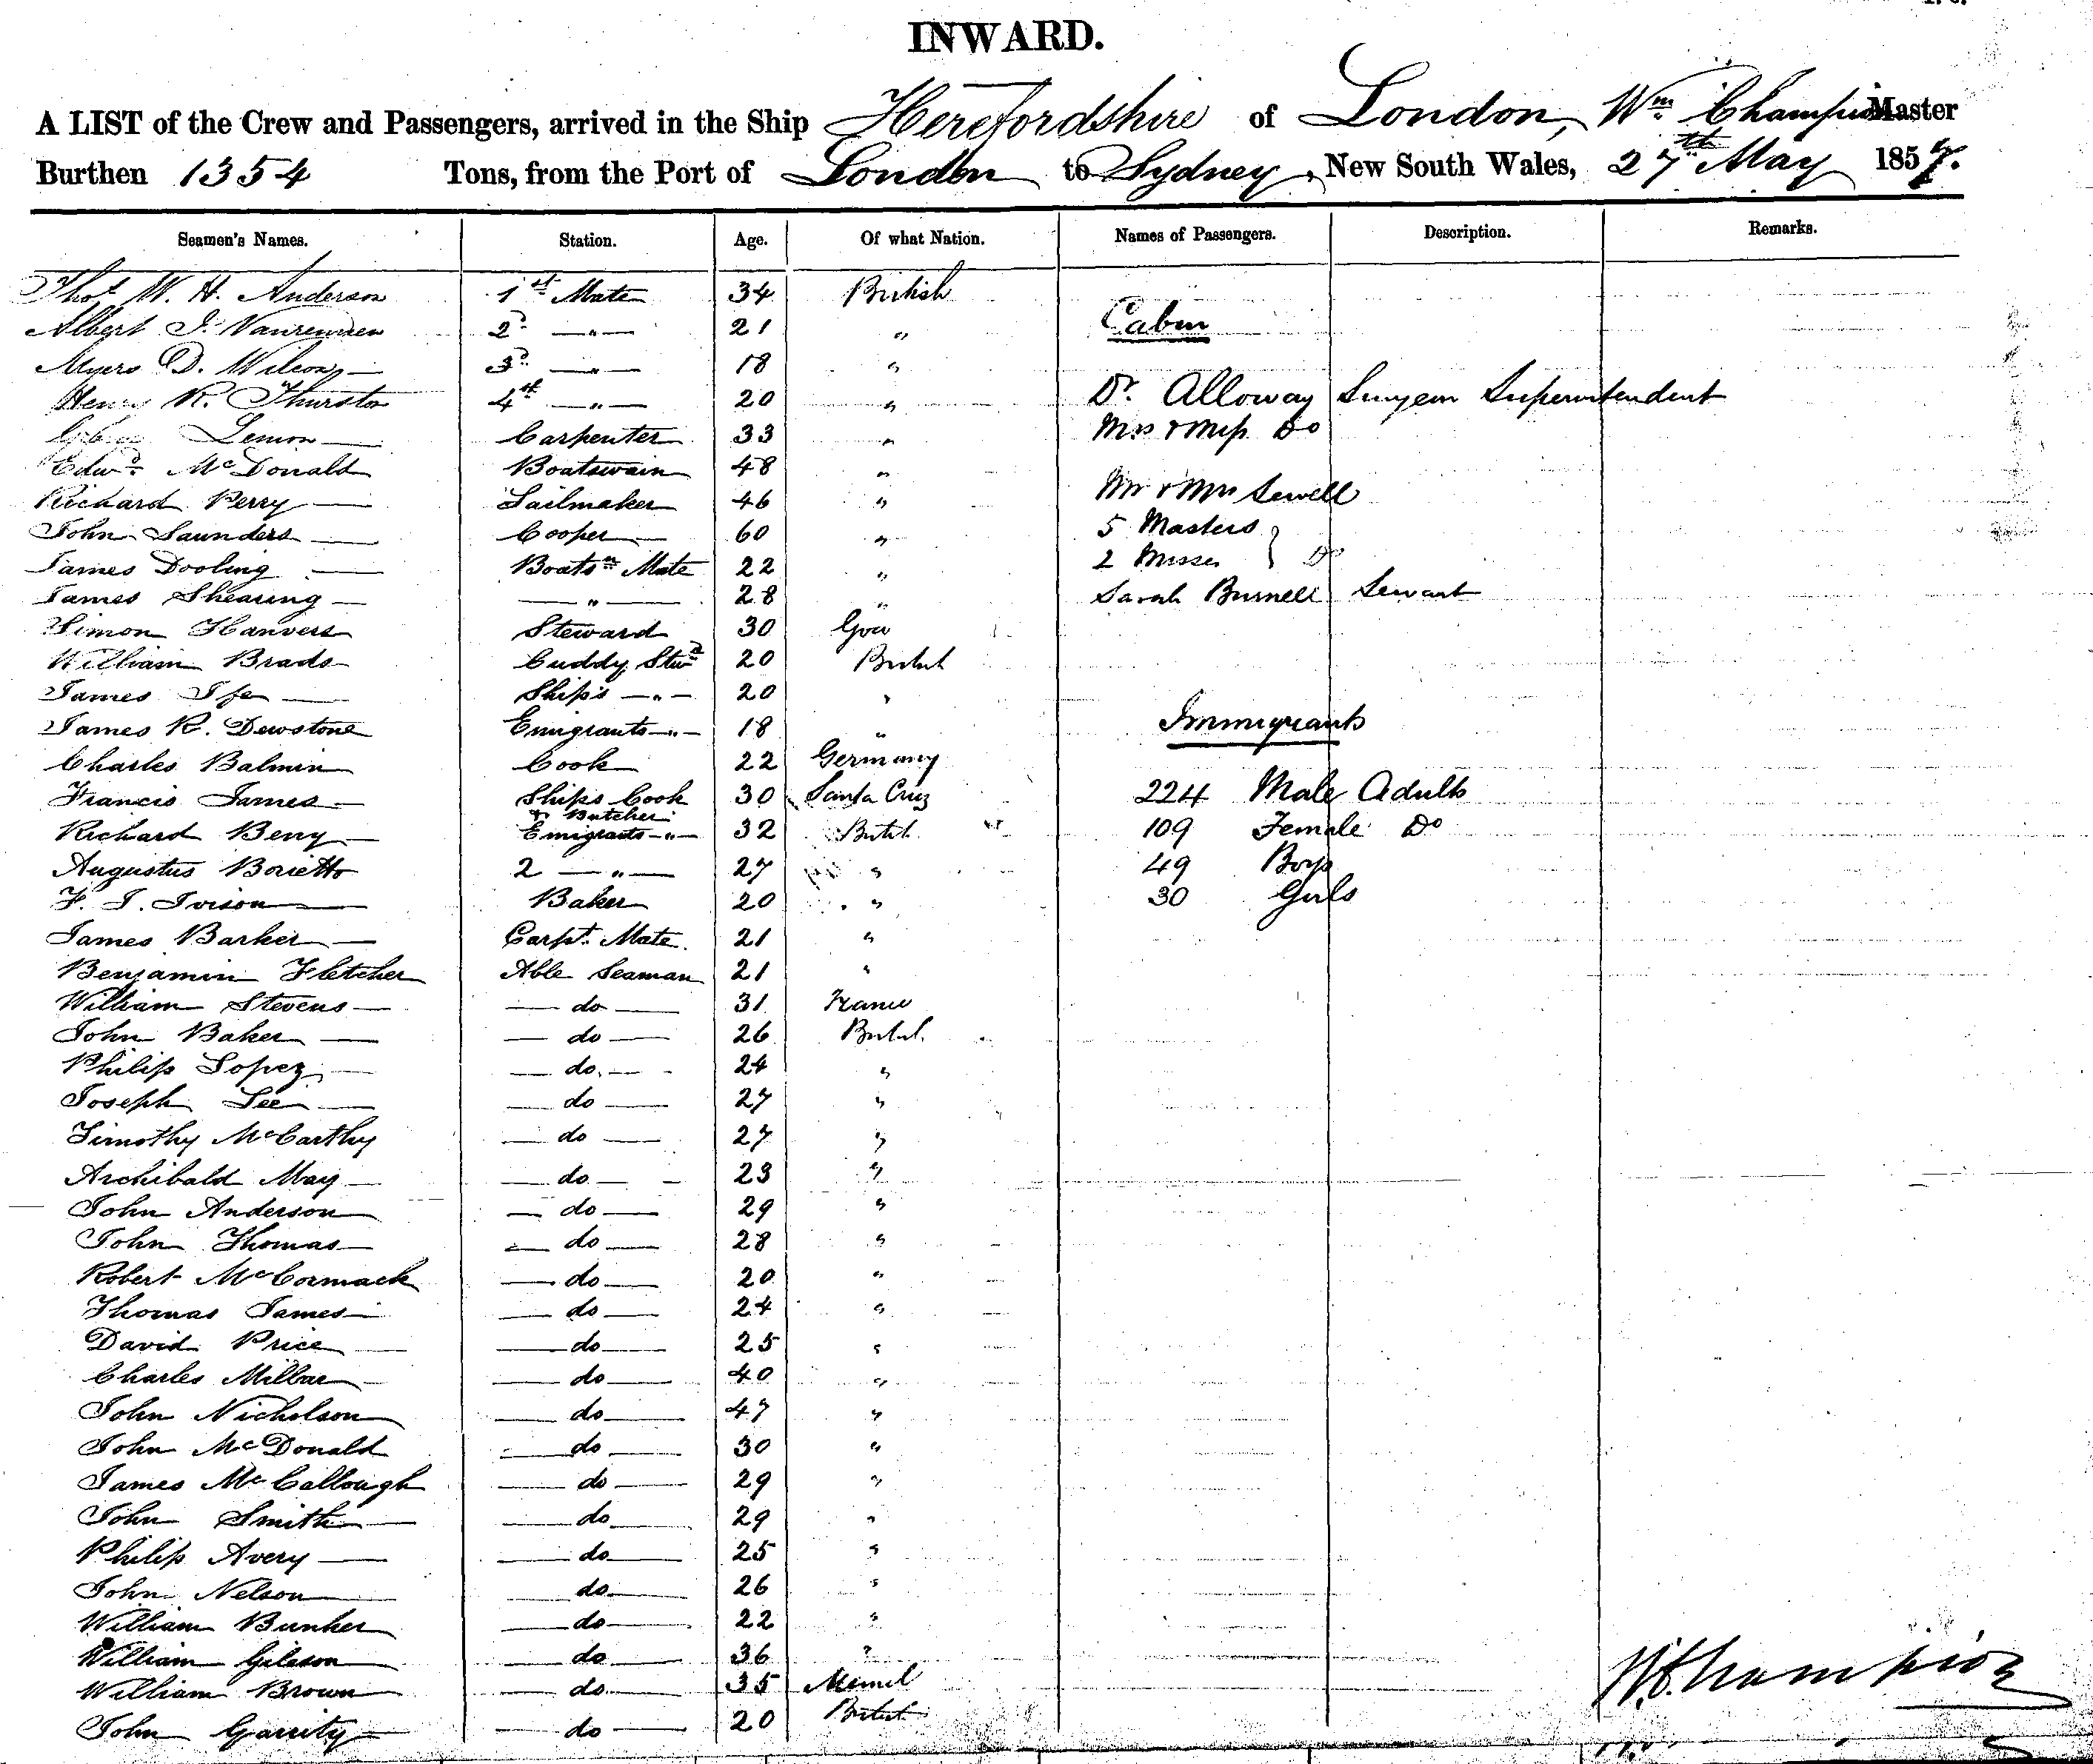 INWARD.
A LIST of the Crew and Passengers, arrived in the Ship Herefordshire of London, Wm. Champion Master
Burthen 1354 Tons, from the Port of London to Sydney, New South Wales, 27th May 1857.
Seamen's Names. Station. Age. Of what Nation. Names of Passengers. Description. Remarks.
Thos W. H. Anderson 1st Mate 34 British
Albert J. 2d —"— 21 " Cabin
Myers D. Wilson 3d —"— 18 "
Henry R. Thurston 4th —"— 20 " Dr. Alloway Surgeon Superintendent
Lemon Carpenter 33 " Mrs & Miss Do
Edwd. McDonald Boatswain 48 "
Richard Perry Sailmaker 46 " Mr & Mrs Sewell
John Saunders Cooper 60 " 5 Masters
James Dooling Boatsn Mate 22 " 2 Misses } Do
James Shearing —"— 28 " Sarah Burnell Servant
Simon Hanvers Steward 30 Goa
William Brads Cuddy Stwd 20 British
James Ife Ship's —"— 20 "
James R. Dewstone Emigrants —"— 18 " Immigrants
Charles Balmin Cook 22 Germany
Francis James Ships Cook 30 Santa Cruz 224 Male Adults
& Butcher
Richard Berry Emigrants —"— 32 British 109 Female Do
Augustus Borietto 2 —"— 27 " 49 Boys
F. J. Ivison Baker 20 " 30 Girls
James Barker Carpt. Mate 21 "
Benjamin Fletcher Able Seaman 21 "
William Stevens — do — 31 France
John Baker — do — 26 British
Philip Lopez — do — 24 "
Joseph Lee — do — 27 "
Timothy McCarthy — do — 27 "
Archibald May — do — 23 "
John Anderson — do — 29 "
John Thomas — do — 28 "
Robert McCormack — do — 20 "
Thomas James — do — 24 "
David Price — do — 25 "
Charles Millar — do — 40 "
John Nicholson — do — 47 "
John McDonald — do — 30 "
James McCallough — do — 29 "
John Smith — do — 29 "
Philip Avery — do — 25 "
John Nelson — do — 26 "
William Bunker — do — 22 "
William Gibson — do — 36 "
William Brown — do — 35 Memel
John Garrity — do — 20 British
W. Champion